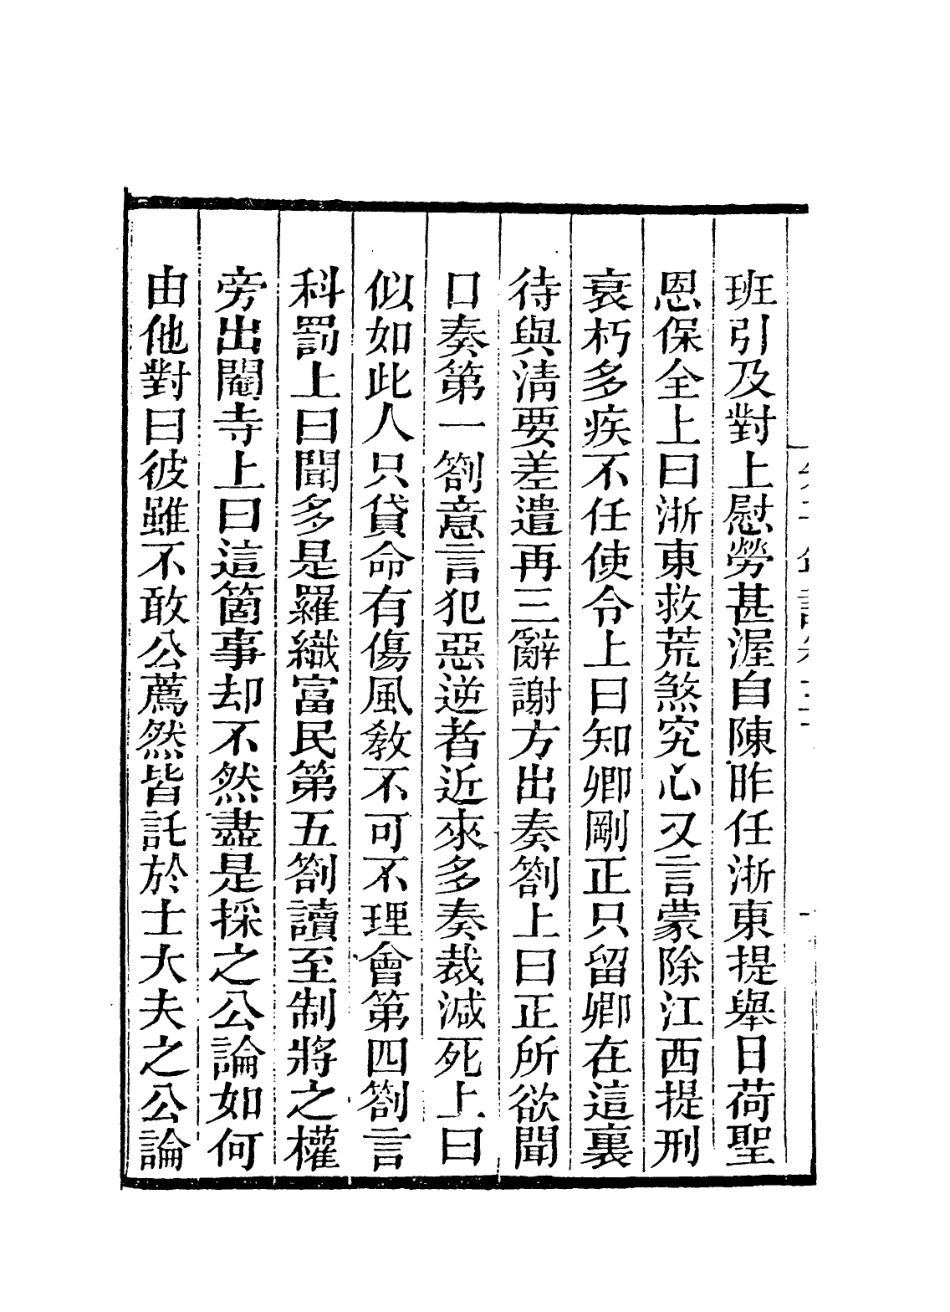 班引及對上慰勞甚渥自陳昨任浙東提舉日荷聖
恩保全上曰浙東救荒煞究心又言蒙除江西提刑
衰朽多疾不任使令上曰知卿剛正只留卿在這裏
待與清要差遣再三辭謝方出奏劄上曰正所欲聞
口奏第一劄意言犯惡逆者近來多奏裁減死上曰
似如此人只貸命有傷風敎不可不理會第四劄言
科罰上曰聞多是羅織富民第五劄讀至制將之權
旁出閹寺上曰這箇事却不然盡是採之公論如何
由他對曰彼雖不敢公薦然皆託於士大夫之公論